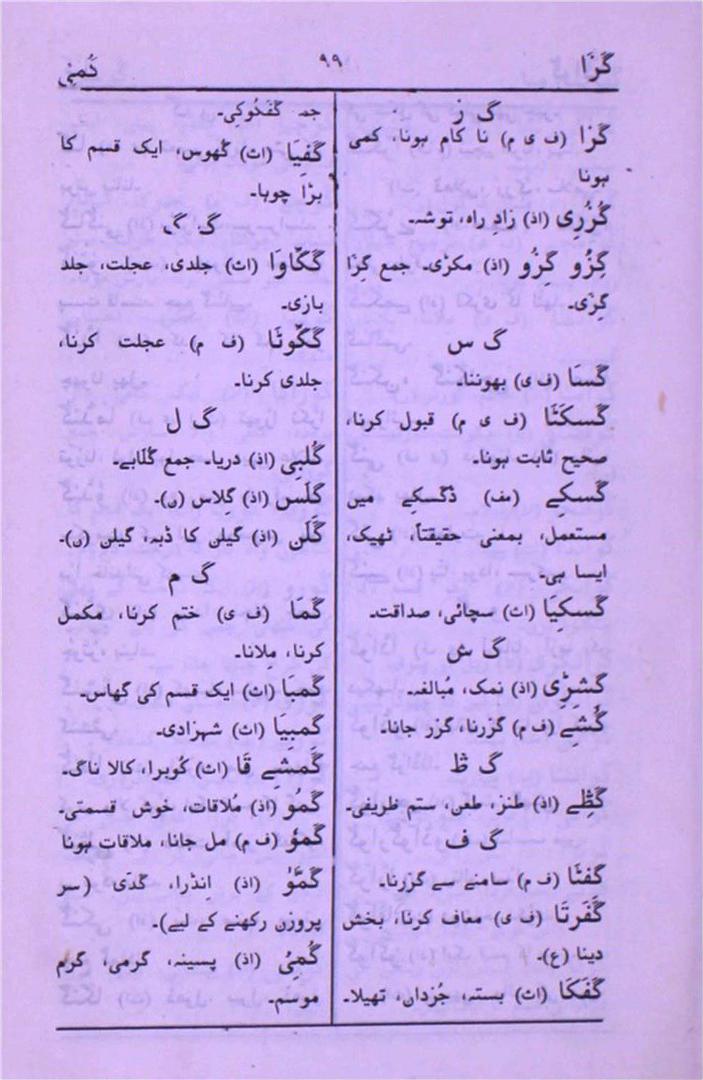 گَزَّا ۹۹ گُمئِی
گ ز
گَزَا (ف ی م) نا کام ہونا، کمی
ہونا
گُزُری (اذ) زادِ راہ، توشہ۔
گِزُو گزُو (اذ) مکڑی۔ جمع گِزا
گِزی۔
گ س
گَسَا (ف ی) بھوننا۔
گَسکَتَا (ف ی م) قبول کرنا،
صحیح ثابت ہونا۔
گَسکِے (مف) دَگَسکِے میں
مستعمل، بمعنی حقیقتاً، ٹھیک،
ایسا ہی۔
گَسکِیَا (اث) سچائی، صداقت۔
گ ش
گشِرِی (اذ) نمک، مُبالغہ۔
گُشَے (ف م) گزرنا، گزر جانا۔
گ ظ
گَظِے (اذ) طنز، طعن، ستم ظریفی۔
گ ف
گفتَا (ف م) سامنے سے گزرنا۔
گَفَرتَا (ف ی) معاف کرنا، بخش
دینا (ع)۔
گَفَکَا (اث) بستہ، جُزدان، تھیلا۔
جمہ گفَکُوکِی۔
گَفِیَا (اث) گھوس، ایک قسم کا
بڑا چوہا۔
گ، گ
گَگَاوَا (اث) جلدی، عجلت، جلد
بازی۔
گَگّوتَا (ف م) عجلت کرنا،
جلدی کرنا۔
گ ل
گُلبِی (اذ) دریا۔ جمع گُلَابے۔
گِلَس (اذ) گِلاس (ن)۔
گَلَن (اذ) گیلن کا ڈبہ، گیلن (ن)۔
گ م
گَمَا (ف ی) ختم کرنا، مکمل
کرنا، ملانا۔
گَمبَا (اث) ایک قسم کی گھاس۔
گمبِیَا (اث) شہزادی۔
گَمشِے قَا (اث) کُوبرا، کالا ناگ۔
گَمُو (اذ) مُلاقات، خوش قسمتی۔
گَمُو (ف م) مل جانا، ملاقات ہونا
گَمُّو (اذ) اِنڈرا، گدّی (سر
پروزن رکھنے کے لیے)۔
گُمِیُ (اذ) پسینہ، گرمی، گرم
موسم۔